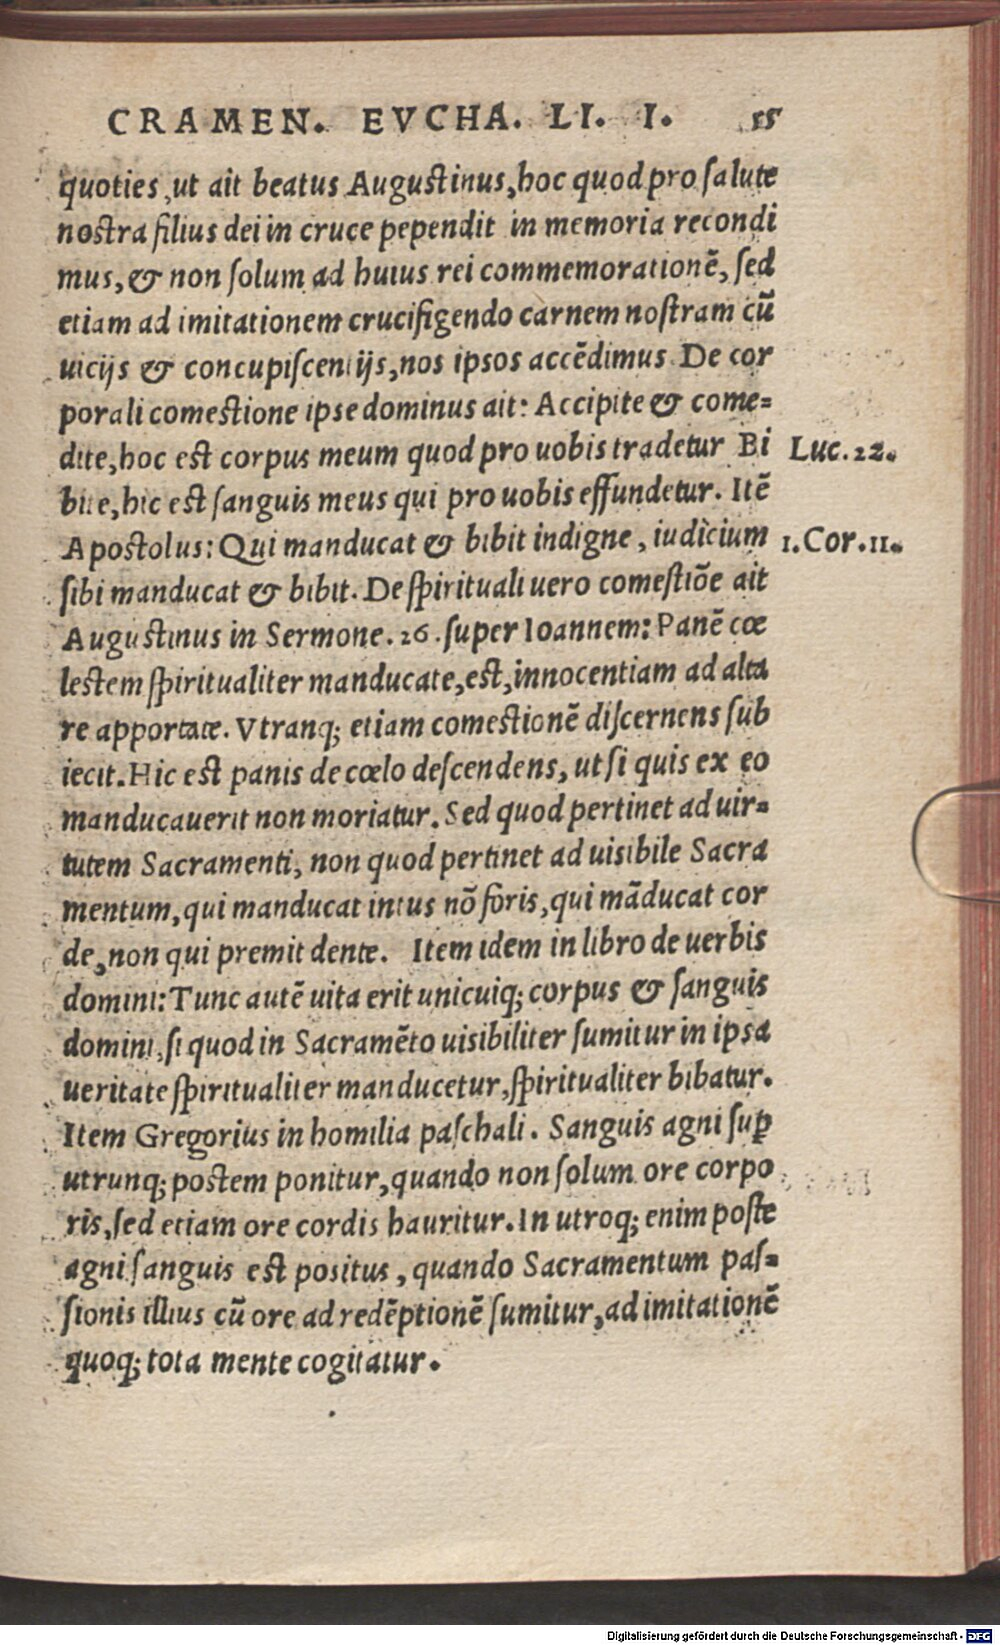 CRAMEN. EVCHA. LI. I. 15
quoties, ut ait beatus Augustinus, hoc quod pro salute
nostra filius dei in cruce pependit in memoria recondi
mus, & non solum ad huius rei commemorationē, sed
etiam ad imitationem crucifigendo carnem nostram cū
uicijs & concupiscentijs, nos ipsos accēdimus De cor
porali comestione ipse dominus ait: Accipite & come=
dite, hoc est corpus meum quod pro uobis tradetur Bi
Luc. 22.
bite, hic est sanguis meus qui pro uobis effundetur. Itē
Apostolus: Qui manducat & bibit indigne, iudicium
1. Cor. 11.
sibi manducat & bibit. De spirituali uero comestiōe ait
Augustinus in Sermone. 26. super Ioannem: Panē cœ
lestem spiritualiter manducate, est, innocentiam ad alta
re apportate. Vtranq; etiam comestionē discernens sub
iecit. Hic est panis de cœlo descendens, ut si quis ex eo
manducauerit non moriatur. Sed quod pertinet ad uir=
tutem Sacramenti, non quod pertinet ad uisibile Sacra
mentum, qui manducat intus nō foris, qui māducat cor
de, non qui premit dente. Item idem in libro de uerbis
domini: Tunc autē uita erit unicuiq; corpus & sanguis
domini, si quod in Sacramēto uisibiliter sumitur in ipsa
ueritate spiritualiter manducetur, spiritualiter bibatur.
Item Gregorius in homilia paschali. Sanguis agni suꝑ
utrunq; postem ponitur, quando non solum ore corpo
ris, sed etiam ore cordis hauritur. In utroq; enim poste
agni sanguis est positus, quando Sacramentum pas=
sionis illius cū ore ad redēptionē sumitur, ad imitationē
quoq; tota mente cogitatur.
Digitalisierung gefördert durch die Deutsche Forschungsgemeinschaft - DFG